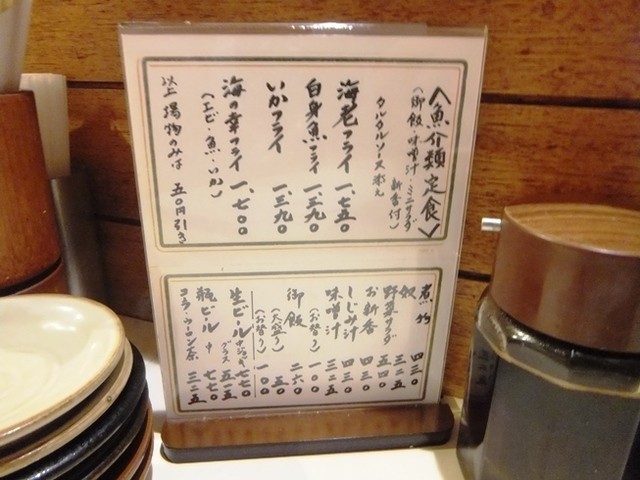 〈魚介類定食〉
(御飯・味噌汁・ミニサラダ
新香付)
タルタルソース添え
海老フライ 一、七五〇
白身魚フライ 一、三九〇
いかフライ 一、三九〇
海の幸フライ 一、七〇〇
(エビ・魚・いか)
以上揚物のみは 五〇円引き
煮物 四三〇
奴 三二五
野菜サラダ 五四〇
お新香 四三〇
しじみ汁 四三〇
味噌汁 三二五
(お替り) 一〇〇
御飯 二六〇
(大盛り) 五〇
(お替り) 一〇〇
生ビール 中ジョッキ 七七〇
グラス 五一五
瓶ビール 中 七七〇
コーラ・ウーロン茶 三二五